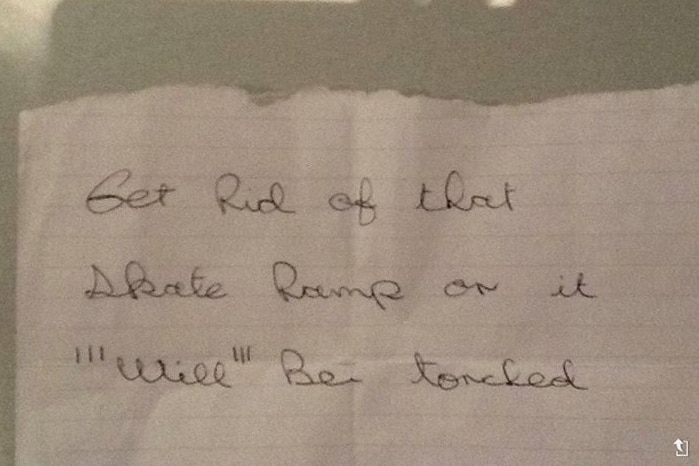 Get Rid of that
Skate Ramp or it
"'Will"' Be torched